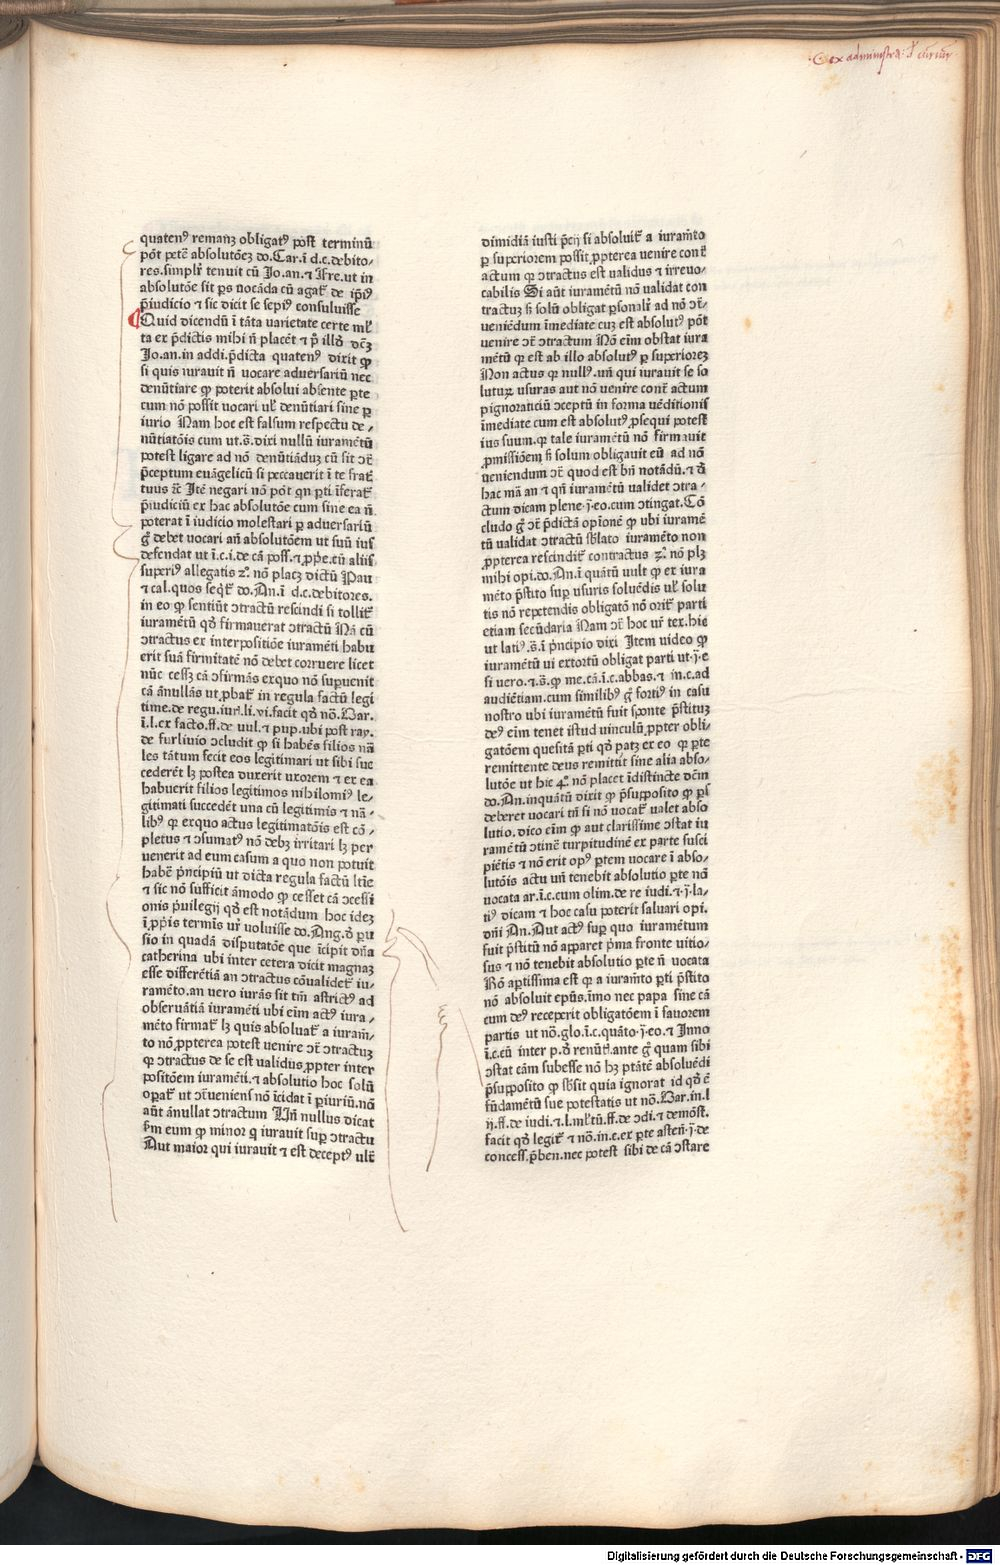 quatenꝰ remanꝫ obligatꝰ post terminū
pōt petē absolutōeꝫ do. Car. ī d.c. debito⸗
res. simplr̄ tenuit cū Jo. an. ⁊ Fre. ut in
absolutōe sit ꝑs uocāda cū agat᷑ de ip̄iꝰ
p̄iudicio ⁊ sic dicit se sepiꝰ consuluisse
Quid dicendū ī tāta varietate certe ml̄
ta ex p̄dictis mihi n̄ placēt ⁊ p̄ illđ dc̄ꝫ
Jo. an. in addi. p̄dicta quatenꝰ dixit ꝙ
si quis iurauit n̄ vocare aduersariū nec
denūtiare ꝙ poterit absolui absente ꝑte
cum nō possit vocari ul̓ denūtiari sine ꝑ
iurio Nam hoc est falsum respectu de⸗
nūtiatōis cum ut.s̄. dixi nullū iuramētū
potest ligare ad nō denūtiāduꝫ cū sit ↄt᷑
p̄ceptum euāgelicū si peccauerit ī te frat᷑
tuus ⁊c̄ Itē negari nō pōt qn ꝑti īferat᷑
p̄iudiciū ex hac absolutōe cum sine ea n̄
poterat ī iudicio molestari ꝑ aduersariū
g̊ debet uocari an̄ absolutōem ut suū ius
defendat ut ī.c.i. de cā poss. ⁊ ꝓp̓e. cū aliis
superiꝰ allegatis 2°. nō placꝫ dictū Pau
⁊ cal. quos seqt᷑ do. An. ī d.c. debitores.
in eo ꝙ sentiūt ↄtractū rescindi si tollit᷑
iuramētū qđ firmauerat ↄtractū Nā cū
ↄtractus ex interpositiōe iuramēti habu
erit suā firmitatē nō debet corruere licet
nūc cessꝫ cā ↄfirmās exquo nō supuenit
cā ānullās ut ꝓbat᷑ in regula factū legi
time. de regu. iur̄. li. vi. facit qđ nō. Bar.
ī.l. ex facto. ff. de uul. ⁊ pup. ubi post ray.
de furliuio ↄcludit ꝙ si habēs filios nā
les tātum fecit eos legitimari ut sibi suc
cederēt lꝫ postea duxerit uxorem ⁊ ex ea
habuerit filios legitimos nihilomiꝰ le⸗
gitimati succedēt una cū legitimis ⁊ nā⸗
libꝰ ꝙ exquo actus legitimatōis est cō⸗
pletus ⁊ ↄsumatꝰ nō debꝫ irritari lꝫ per
uenerit ad eum casum a quo non potuit
habē p̄ncipiū ut dicta regula factū ltīe
⁊ sic nō sufficit āmodo ꝙ cesset cā ↄcessi
onis p̄uilegij qđ est notādum hoc ideꝫ
ī ꝓp̓is termīs ur̄ voluisse do. Ang. đ pu
sio in quadā disputatōe que īcipit dn̄a
catherina ubi inter cetera dicit magnaꝫ
esse differētiā an ↄtractus cōualidet᷑ iu⸗
ramēto. an uero iurās sit tm̄ astrictꝰ ad
obseruātiā iuramēti ubi eīm actꝰ iura⸗
mēto firmat᷑ lꝫ quis absoluat᷑ a iuram̄⸗
to nō ꝓpterea potest uenire ↄt᷑ ↄtractuꝫ
ꝙ ↄtractus de se est validus ꝓpter inter
positōem iuramēti. ⁊ absolutio hoc solū
opat᷑ ut ↄt᷑ueniens nō īcidat ī ꝑiuriū. nō
aūt ānullat ↄtractum Un̄ nullus dicat
p̄m eum ꝙ minor q iurauit sup̄ ↄtractu
Aut maior qui iurauit ⁊ est deceptꝰ ult᷑
dimidiā iusti p̄cij si absoluit᷑ a iuram̄to
ꝑ superiorem possit ꝓpterea uenire cont᷑
actum ꝙ ↄtractus est validus ⁊ irreuo⸗
cabilis Si aūt iuramētū nō validat con
tractuꝫ sꝫ solū obligat ꝑsonalr̄ ad nō ↄt᷑⸗
ueniēdum īmediate cuꝫ est absolutꝰ pōt
uenire ↄt᷑ ↄtractum Nō eīm obstat iura
mētū ꝙ est ab illo absolutꝰ ꝑ superioreꝫ
Non actus ꝙ nullꝰ. un̄ qui iurauit se so
luturꝫ usuras aut nō uenire cont᷑ actum
pignoraticiū ↄceptū in forma uēditionis
īmediate cum est absolutꝰ ꝓsequi potest
ius suum. ꝙ tale iuramētū nō firmauit
ꝓmissiōem sꝫ solum obligauit eū ad nō
ueniendum ↄt᷑ quod est bn̄ notādū. ⁊ đ
hac mā an ⁊ qn̄ iuramētū validet ↄtra⸗
ctum dicam plene.j. eo. cum ↄtingat. Cō
cludo g̊ ↄt᷑ p̄dictā opīonē ꝙ ubi iuramē
tū validat ↄtractū sb̓lato iuramēto non
ꝓpterea rescindit᷑ contractus 3°. nō plꝫ
mihi opi. do. An. ī quātū uult ꝙ ex iura
mēto p̄stito sup usuris soluēdis ul̓ solu
tis nō repetendis obligatō nō orit᷑ parti
etiam secūdaria Nam ↄt᷑ hoc ur̄ tex. hic
ut latiꝰ.s̄. ī p̄ncipio dixi Item uideo ꝙ
iuramētū ui extortū obligat parti ut.j. e
si uero. ⁊.s̄. ꝙ me. cā.ī.c. abbas. ⁊ in.c. ad
audiētiam. cum similibꝰ g̊ fortiꝰ in casu
nostro ubi iuramētū fuit sponte p̄stituꝫ
deꝰ eīm tenet istud uinculū ꝓpter obli⸗
gatōem quesitā ꝑti qđ patꝫ ex eo ꝙ ꝑte
remittente deus remittit sine alia abso⸗
lutōe ut hic 4°. nō placet īdistincte dc̄m
do. An. inquātū dixit ꝙ p̄supposito ꝙ ꝑs
deberet uocari tn̄ si nō uocat᷑ ualet abso
lutio. dico eīm ꝙ aut clarissime ↄstat iu
ramētū ↄtinē turpitudinē ex parte susci
piētis ⁊ nō erit opꝰ ꝑtem uocare ī abso⸗
lutōis actu un̄ tenebit absolutio ꝑte nō
uocata ar.ī.c. cum olim. de re iudi. ⁊.j. la⸗
tiꝰ dicam ⁊ hoc casu poterit saluari opi.
dn̄i An. Aut actꝰ sup̄ quo iuramētum
fuit p̄stitū nō apparet p̄ma fronte uitio⸗
sus ⁊ nō tenebit absolutio ꝑte n̄ uocata
Rō aꝑtissima est ꝙ a iuram̄to ꝑti p̄stito
nō absoluit ep̄us. īmo nec papa sine cā
cum deꝰ receperit obligatōem ī fauorem
partis ut nō. glo.ī.c. quāto.j. eo. ⁊ Inno
ī.c. cū inter p. đ renūt̄. ante g̊ quam sibi
ↄstat cām subesse nō hꝫ ptātē absoluēdi
p̄supposito ꝙ sb̓sit quia ignorat id qđ ē
fūdamētū sue potestatis ut nō. Bar. in.l
ij. ff. de iudi. ⁊.l. ml̓tū. ff. de ↄdi. ⁊ demōst.
facit qđ legit᷑ ⁊ nō. in.c. ex ꝑte asten̄.j. de
concess. p̄ben. nec potest sibi de cā ↄstare
Digitalisierung gefördert durch die Deutsche Forschungsgemeinschaft - DFG